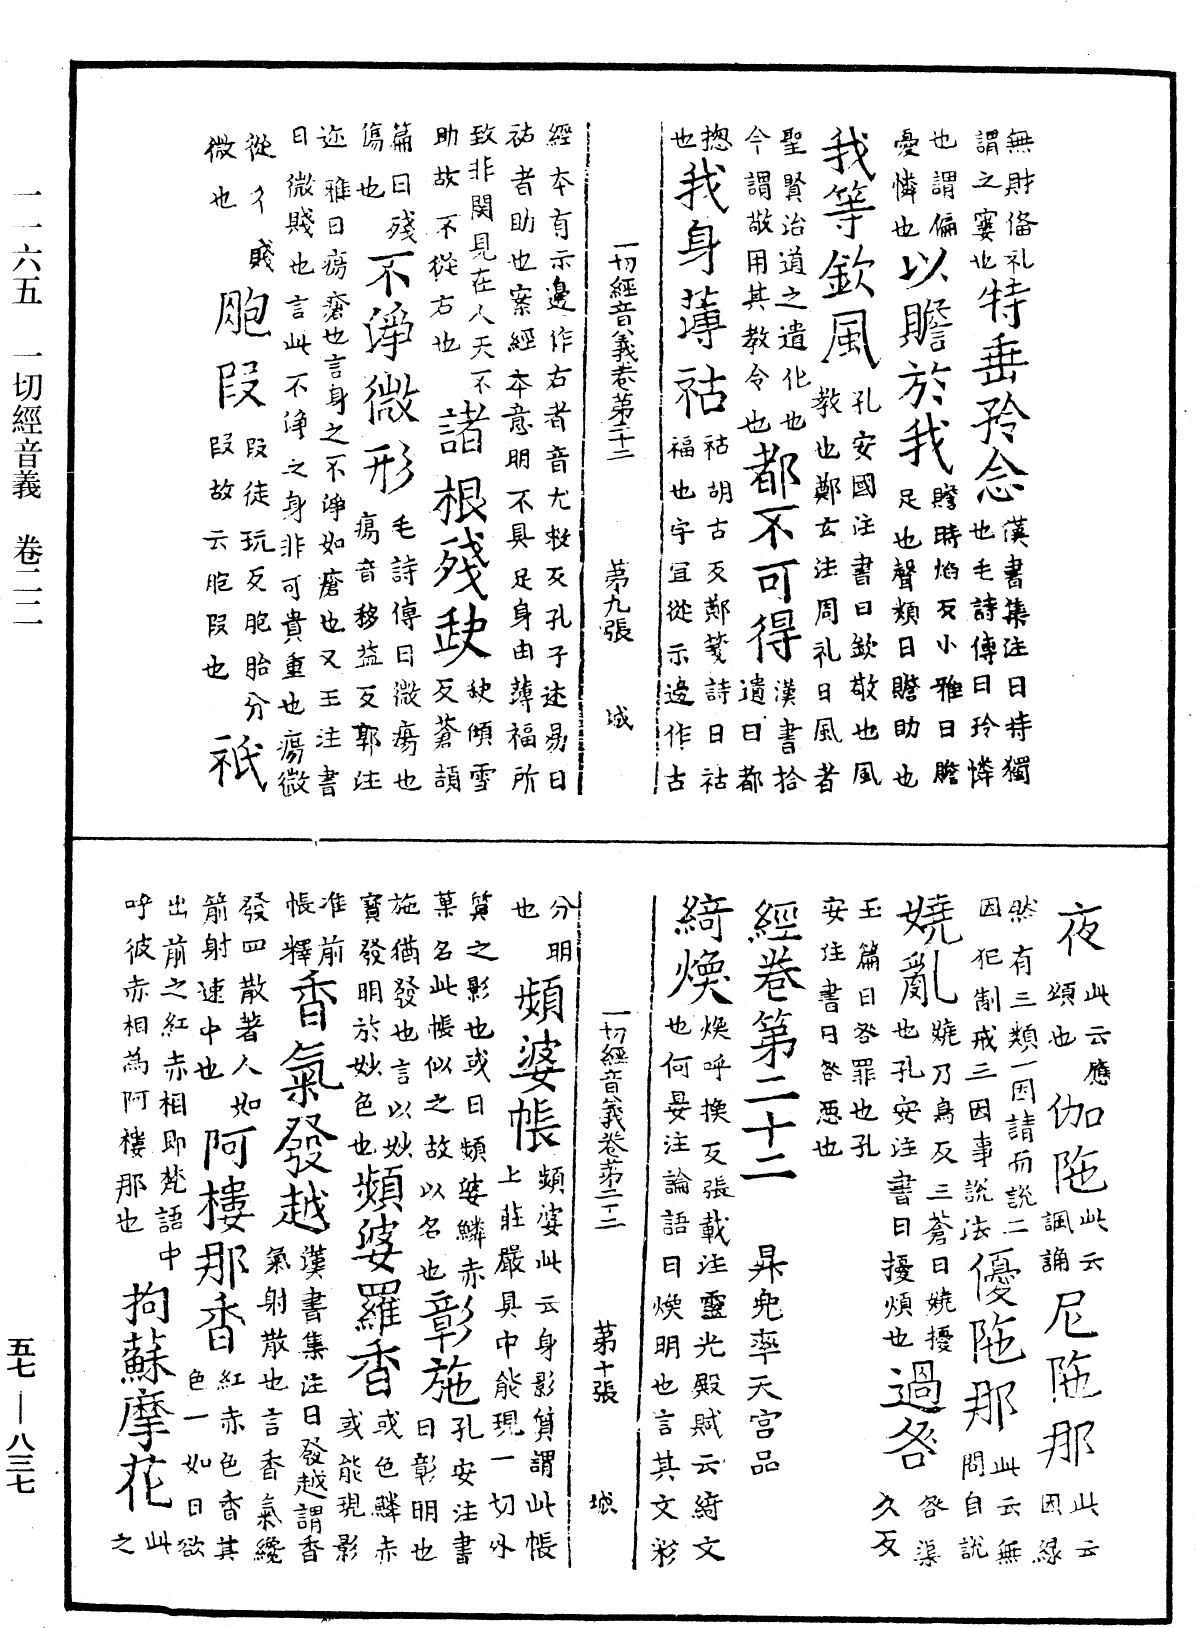 無財俻礼謂之寠也特垂矜念漢書集注曰特獨也毛詩傳曰矜憐
也謂偏憂憐也以贍於我贍時焰反小雅曰贍足也聲類曰贍助也
我等欽風孔安國注書曰欽敬也風教也鄭玄注周礼曰風者
聖賢治道之遺化也今謂敬用其教令也都不可得漢書拾遺曰都
揔也我身薄祜祜胡古反鄭箋詩曰祜福也字冝從示邊作古
一切經音義卷第二十二 第九張 城
經本有示邊作右者音尤救反孔子述易曰祐者助也案經本意明不具足身由薄福所
致非関見在人天不助故不從右也諸根殘缺缺傾雪反蒼頡
篇曰殘傷也不淨微形毛詩傳曰微瘍也瘍音移益反郭注
迩雅曰瘍瘡也言身之不淨如瘡也又王注書曰微賤也言此不淨之身非可貴重也瘍微
從彳賤微也胞段段徒玩反胞胎分段故云胞段也祇
夜此云應頌也伽陁此云諷誦尼陁那此云因緣
然有三類一因請而說二因犯制戒三因事說法優陁那此云無問自說
嬈亂嬈乃鳥反三蒼曰嬈擾也孔安注書曰擾煩也過咎咎渠久反
玉篇曰咎罪也孔安注書曰咎惡也
經卷第二十二 昇兜率天宮品
綺煥煥呼換反張載注靈光殿賦云綺文也何晏注論語曰煥明也言其文彩
一切經音義卷第二十二 第十張 城
分明也頻婆帳頻婆此云身影質謂此帳上莊嚴具中能現一切外
質之影也或曰頻婆鱗赤菓名此帳似之故以名也彰施孔安注書曰彰明也
施猶發也言以妙寶發明於妙色也頻婆羅香或色鱗赤或能現影
准前帳釋香氣發越漢書集注曰發越謂香氣射散也言香氣纔
發四散著人如箭射速中也阿樓那香紅赤色香其色一如日欲
出前之紅赤相即梵語中呼彼赤相為阿樓那也拘蘇摩花此之
一一六五 一切經音義 卷二二
五七—八三七